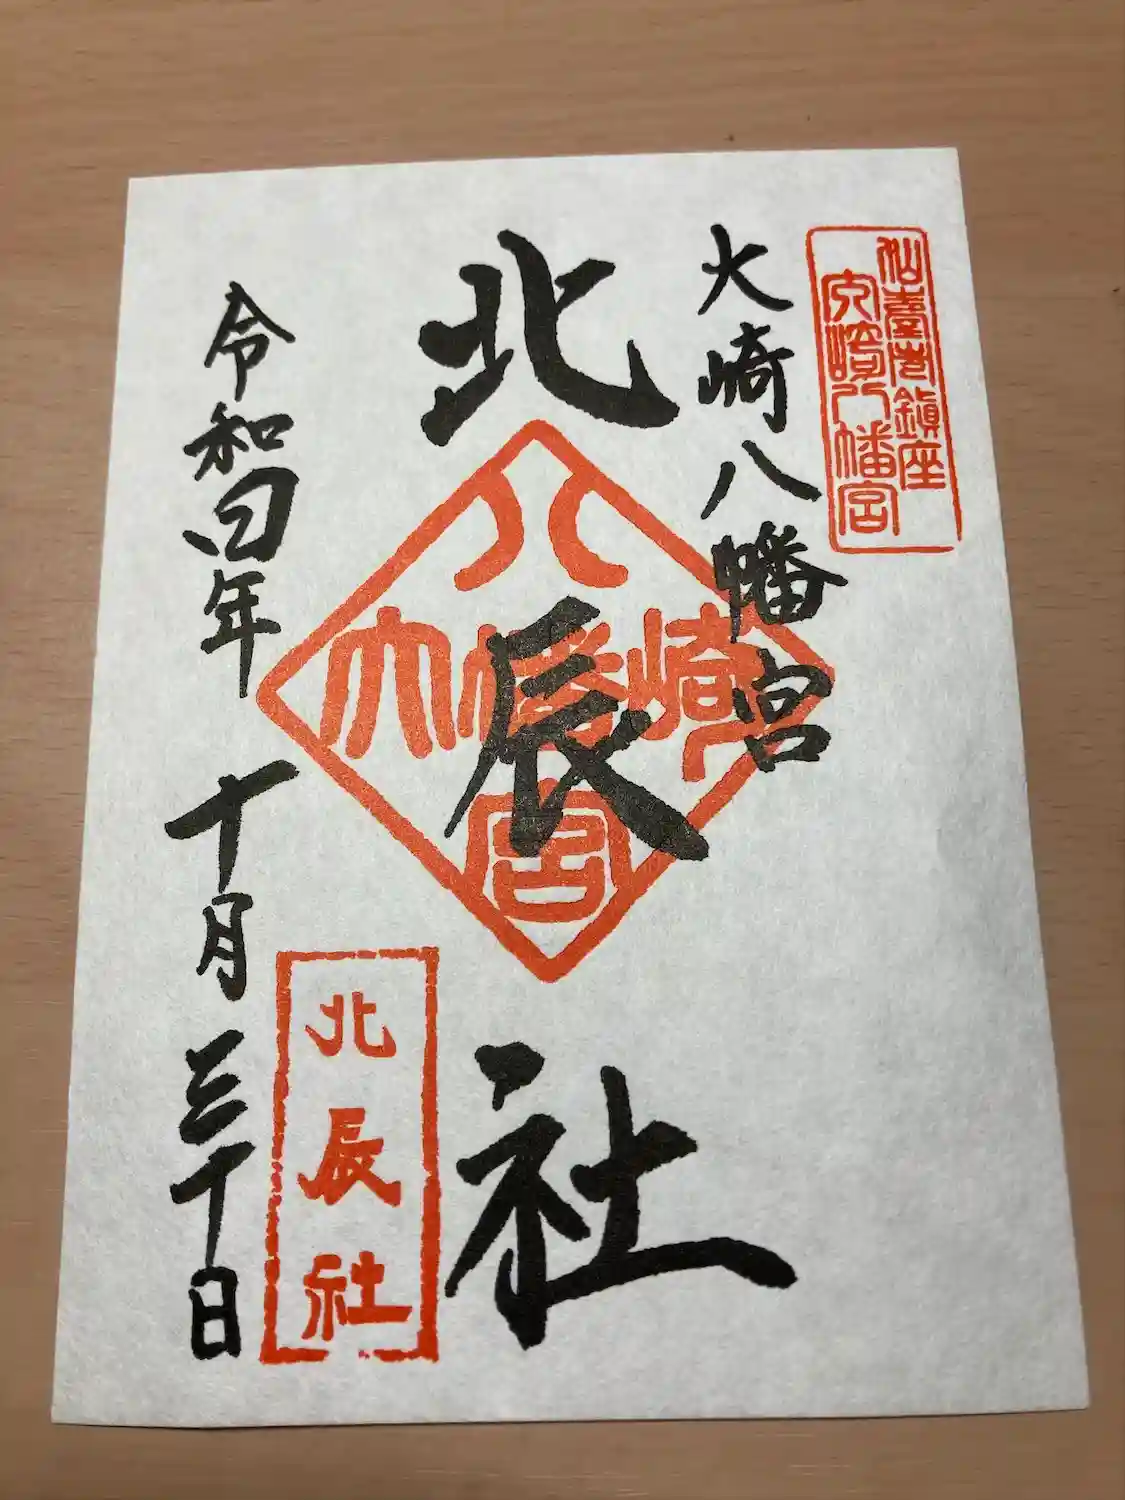 仙臺市鎮座
大崎八幡宮
大崎八幡宮
北辰社
八
大幡崎
宮
北辰社
令和四年十月三十日